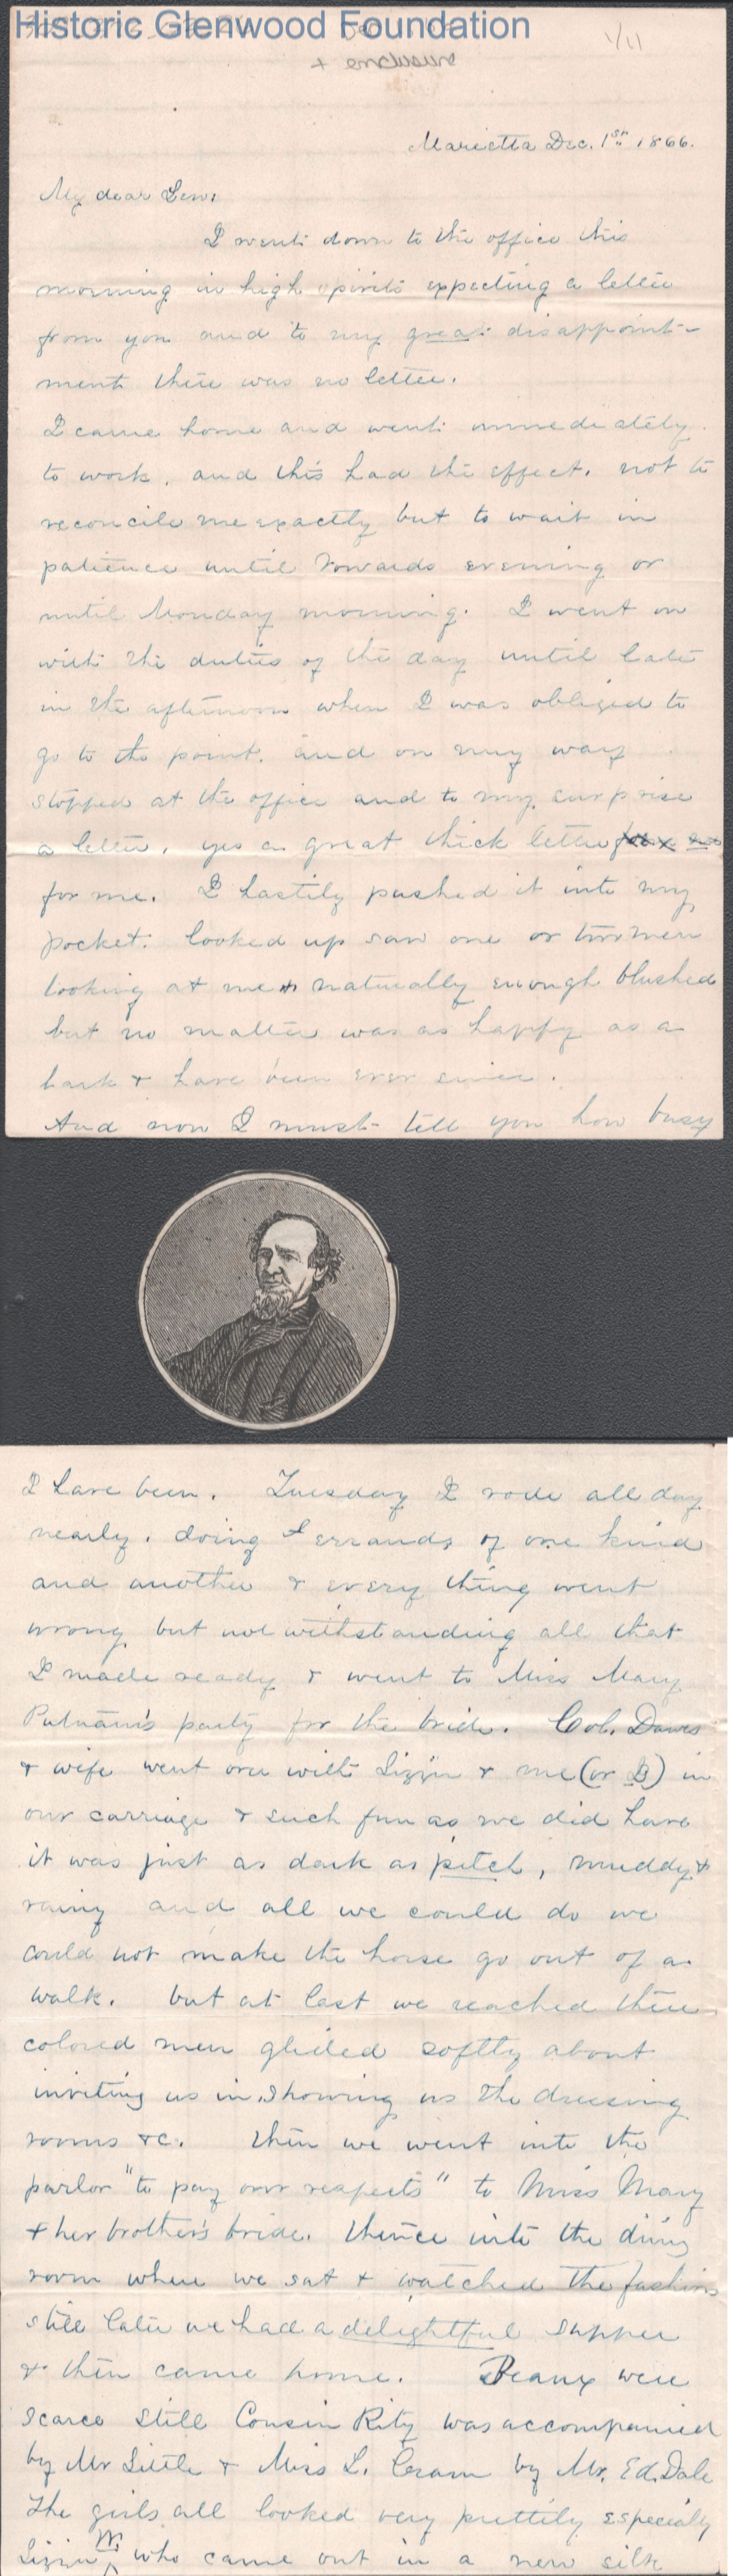 Historic Glenwood Foundation
1/11
+ enclosure
Marietta Dec. 1st 1866.
My dear Lew.
I went down to the office this
morning in high spirits expecting a letter
from you and to my great disappoint-
ment there was no letter.
I came home and went immediately
to work, and this had the effect, not to
reconcile me exactly but to wait in
patience until towards evening or
until Monday morning. I went on
with the duties of the day until late
in the afternoon when I was obliged to
go to the point, and on my way
stopped at the office and to my surprise
a letter, yes a great thick letter
for me. I hastily pushed it into my
pocket. looked up saw one or two men
looking at me & naturally enough blushed
but no matter was as happy as a
lark & have been ever since.
And now I must tell you how busy
I have been. Tuesday I rode all day
nearly, doing errands of one kind
and another & every thing went
wrong but not withstanding all that
I made ready & went to Miss Mary
Putnam's party for the bride. Col. Dawes
& wife went over with Lizzie & me (or B) in
our carriage & such fun as we did have
it was just as dark as pitch, muddy &
rainy and all we could do we
could not make the horse go out of a
walk. but at last we reached there
colored men glided softly about
inviting us in, showing us the dressing
rooms &c. then we went into the
parlor "to pay our respects" to Miss Mary
& her brother's bride. thence into the dining
room where we sat & watched the fashions
still later we had a delightful supper
& then came home. Beaux were
scarce still Cousin Kity was accompanied
by Mr Little & Miss L. Cram by Mr. Ed. Dale
The girls all looked very prettily especially
Lizzie W. who came out in a new silk